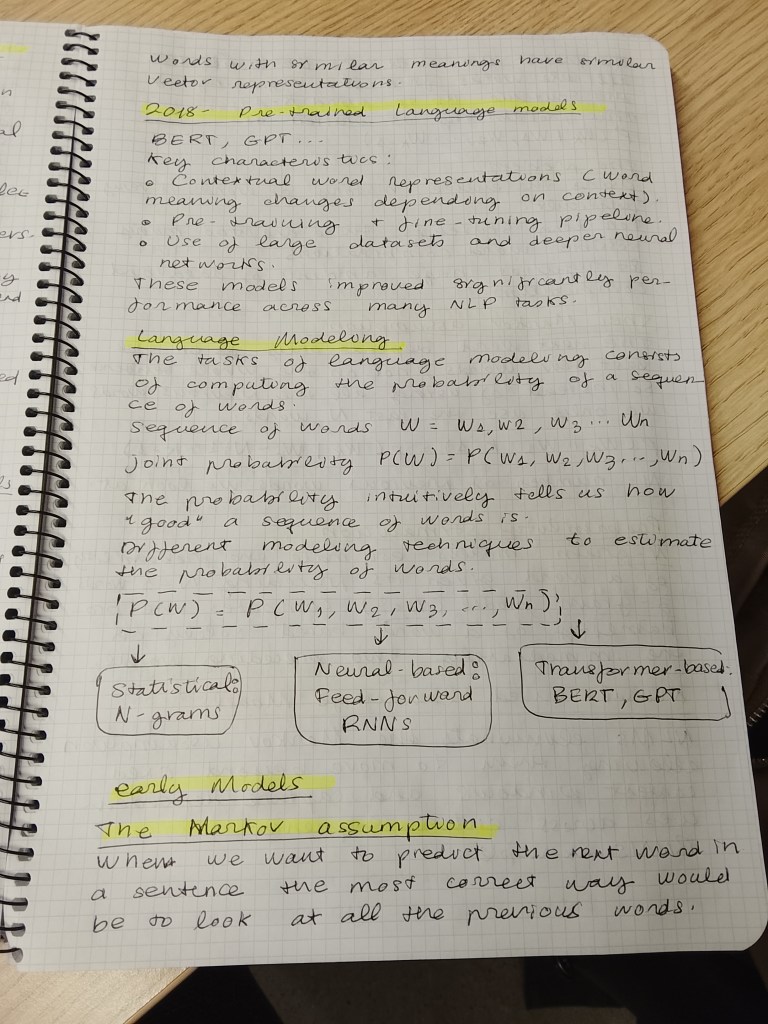 words with similar meanings have similar
vector representations.
2018- Pre-trained Language models
BERT, GPT...
Key characteristics:
• Contextual word representations (word
meaning changes depending on context).
• Pre-training + fine-tuning pipeline.
• Use of large datasets and deeper neural
networks.
These models improved significantly per-
formance across many NLP tasks.
Language Modeling
The tasks of language modeling consists
of computing the probability of a sequen
ce of words.
Sequence of words W = W1, W2, W3 ... Wn
joint probability P(W) = P(W1, W2, W3..., Wn)
The probability intuitively tells us how
"good" a sequence of words is.
Different modeling techniques to estimate
the probability of words.
P(W) = P(W1, W2, W3, ..., Wn)
↓ ↓ ↓
Statistical:
N-grams
Neural-based:
Feed-forward
RNNs
Transformer-based:
BERT, GPT
early Models
The Markov assumption
When we want to predict the next word in
a sentence the most correct way would
be to look at all the previous words.